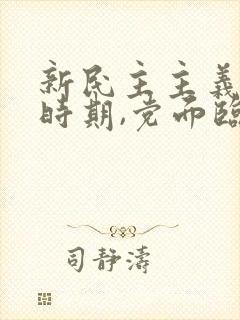 新民主主義
時期,党面臨
司静濤